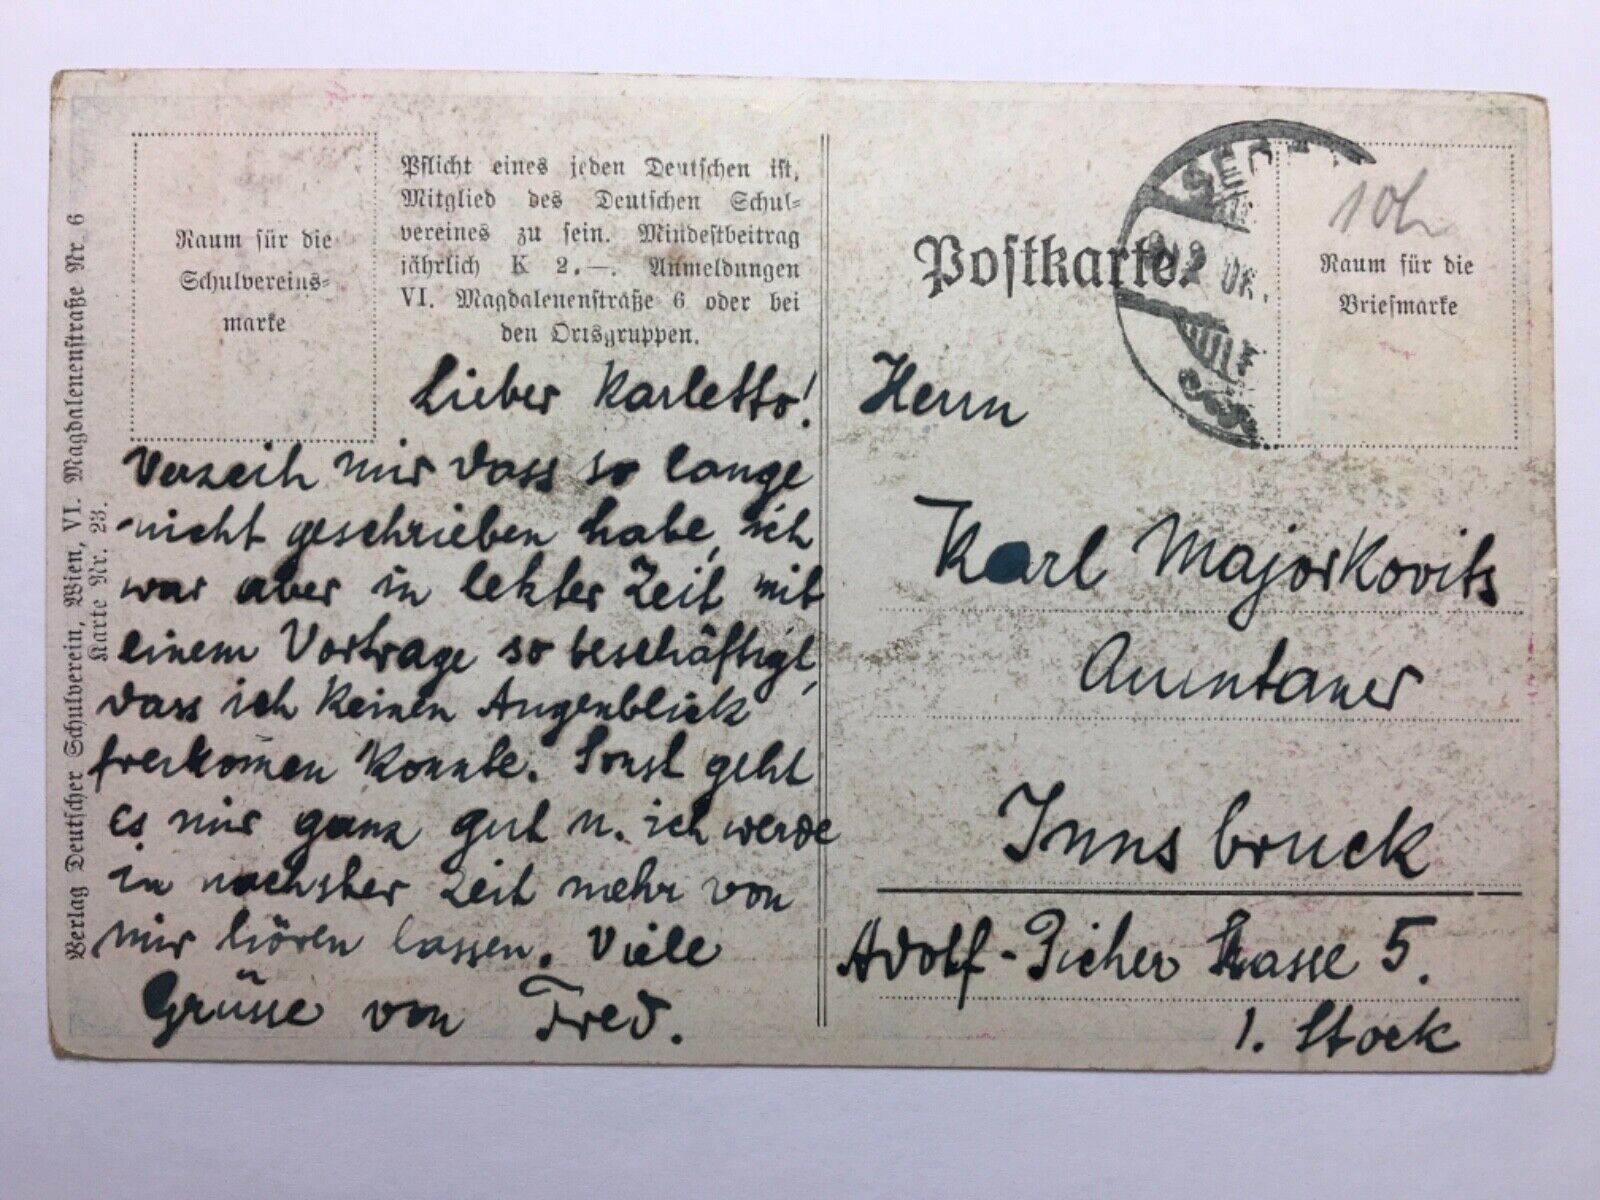 Raum für die
Schulvereins-
marke
Pflicht eines jeden Deutschen ist,
Mitglied des Deutschen Schul-
vereines zu sein. Mindestbeitrag
jährlich K 2.—. Anmeldungen
VI. Magdalenenstraße 6 oder bei
den Ortsgruppen.
Verlag Deutscher Schulverein, Wien, VI. Magdalenenstraße Nr. 6
Karte Nr. 23.
Lieber Karletto!
Verzeih mir dass so lange
nicht geschrieben habe, ich
war aber in letzter Zeit mit
einem Vortrage so beschäftigt,
dass ich keinen Augenblick
freikom̄en konnte. Sonst geht
es mir ganz gut u. ich werde
in nächster Zeit mehr von
mir hören lassen. Viele
Grüsse von Fred.
Postkarte.
Raum für die
Briefmarke
Herrn
Karl Majorkovits
Innsbruck
Adolf-Picher Strasse 5.
1. Stock